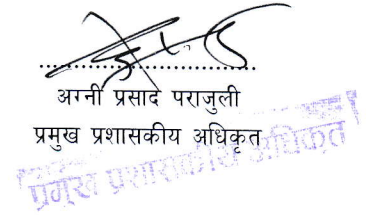 अग्नी प्रसाद पराजुली
प्रमुख प्रशासकीय अधिकृत
प्रमुख प्रशासकीय अधिकृत